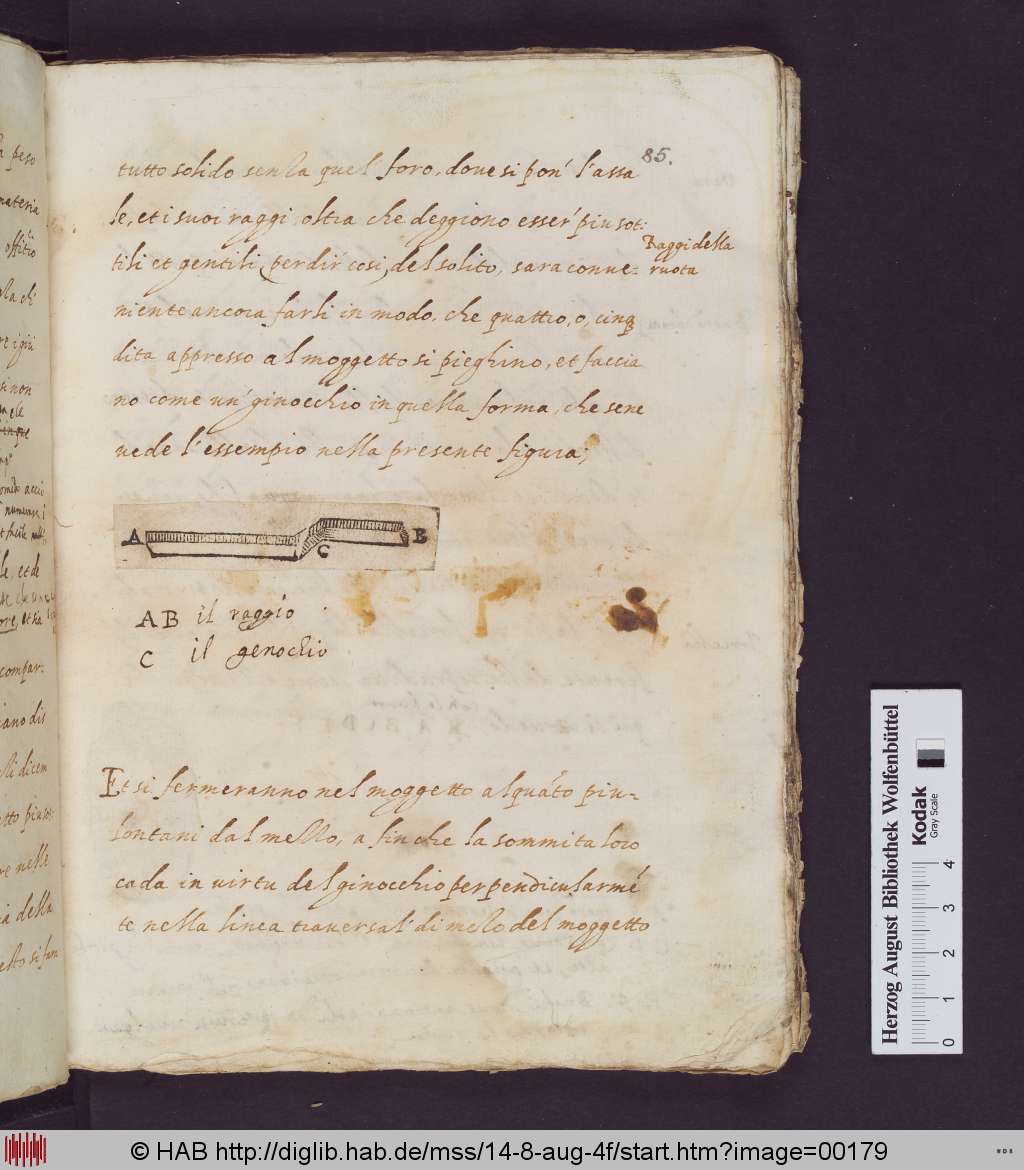 85.
tutto solido senza quel foro, doue si pon' l'assa
le, et i suoi raggi, oltra che deggiono esser' piu sot:
Raggi della
ruota
tili et gentili (per dir' cosi) del solito, sara conue=
niente ancora farli in modo, che quattro, o, cinq
dita appresso al moggetto si pieghino, et faccia
no come un' ginocchio in quella forma, che sene
uede l'essempio nella presente figura;
A C B
AB il raggio
C il genochio
Et si fermeranno nel moggetto alquāto piu=
lontani dal mezzo, a fin che la sommita loro
cada in uirtu del ginocchio perpendicularmē
te nella linea trauersal' di mezo del moggetto
Herzog August Bibliothek Wolfenbüttel
Kodak
Gray Scale
0 1 2 3 4
© HAB http://diglib.hab.de/mss/14-8-aug-4f/start.htm?image=00179